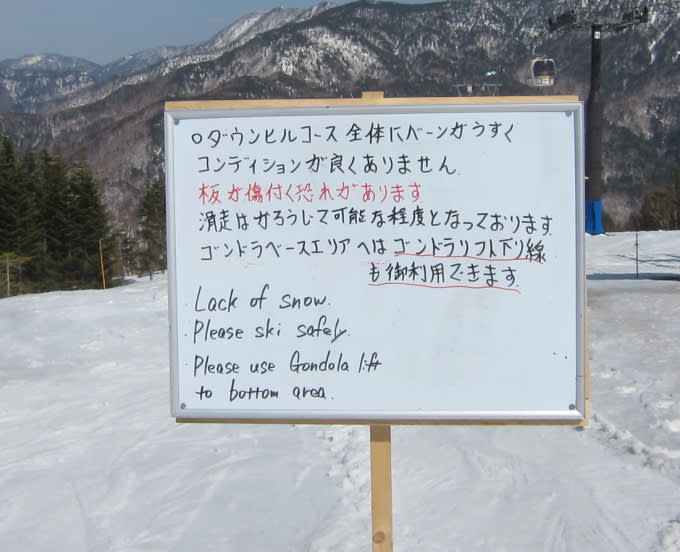 ○ダウンヒルコース全体にバーンがうすく
コンディションが良くありません.
板が傷付く恐れがあります.
滑走はかろうじて可能な程度となっております.
ゴンドラベースエリアへはゴンドラリフト下り線
も御利用できます.
Lack of snow.
Please ski safely.
Please use Gondola lift
to bottom area.